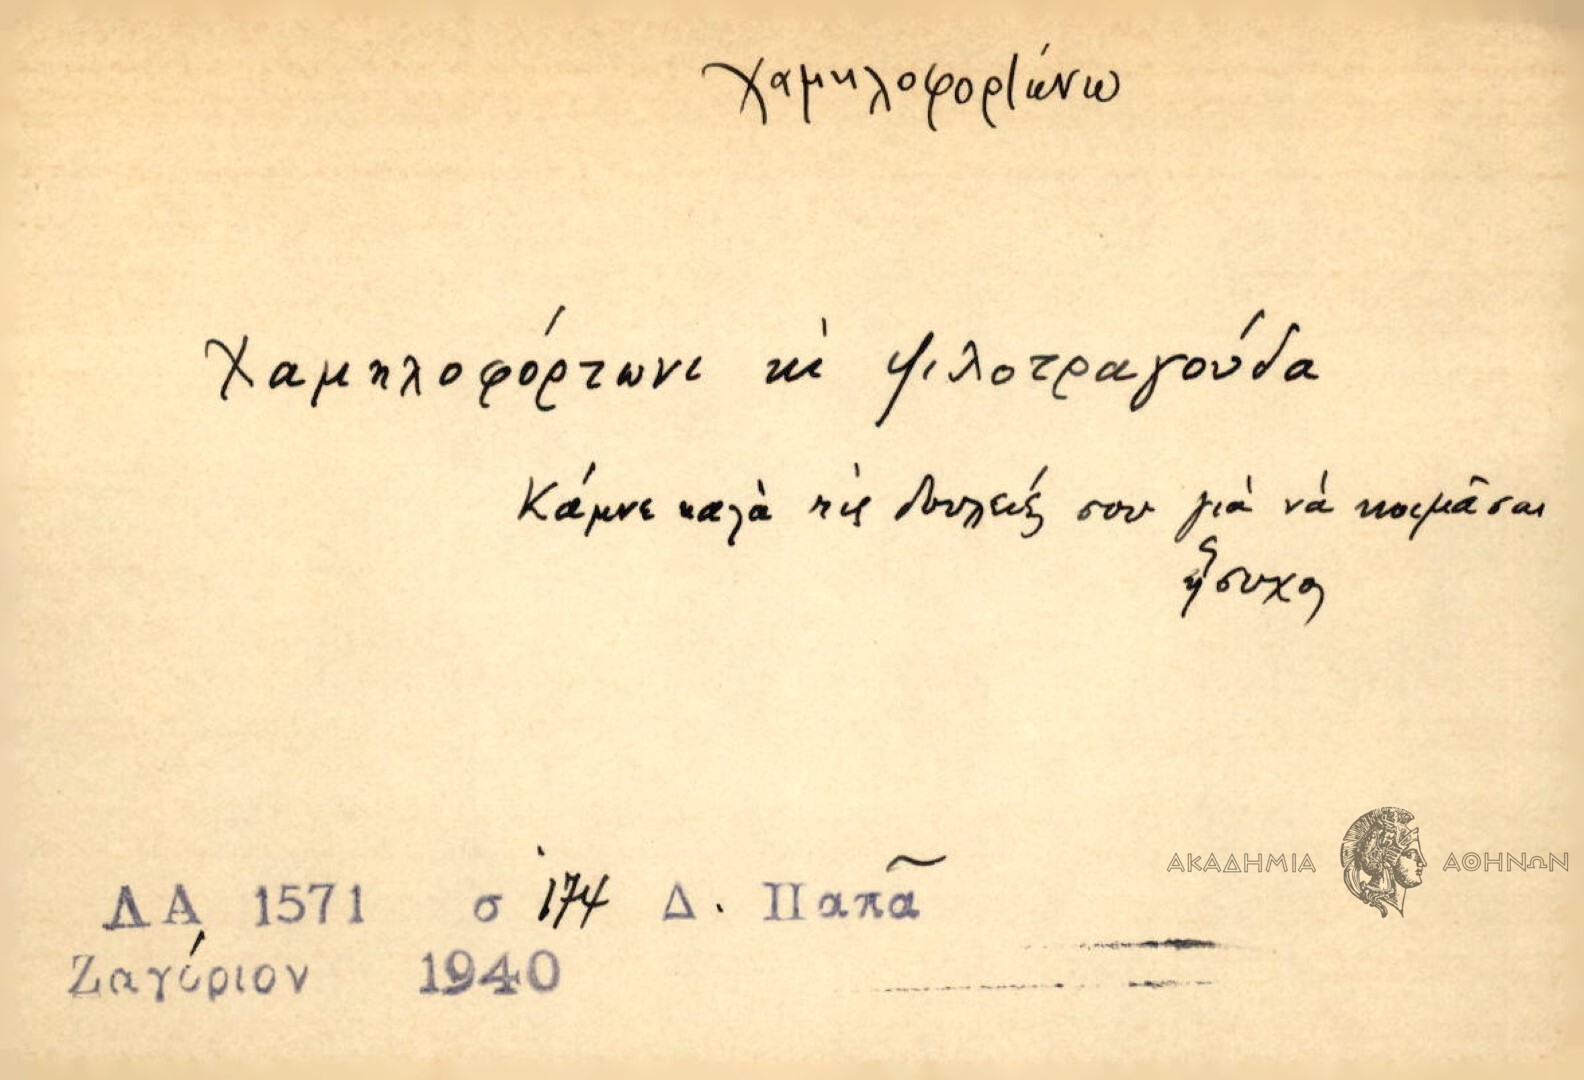 χαμηλοφορτώνω
Χαμηλοφόρτωνι κὶ ψιλοτραγούδα
Κάμνε καλὰ τὶς δουλειές σου γιὰ νὰ κοιμᾶσαι
ἥσυχος
ΛΑ 1571 σ 174 Δ. Παπᾶ
Ζαγόριον 1940
ΑΚΑΔΗΜΙΑ ΑΘΗΝΩΝ